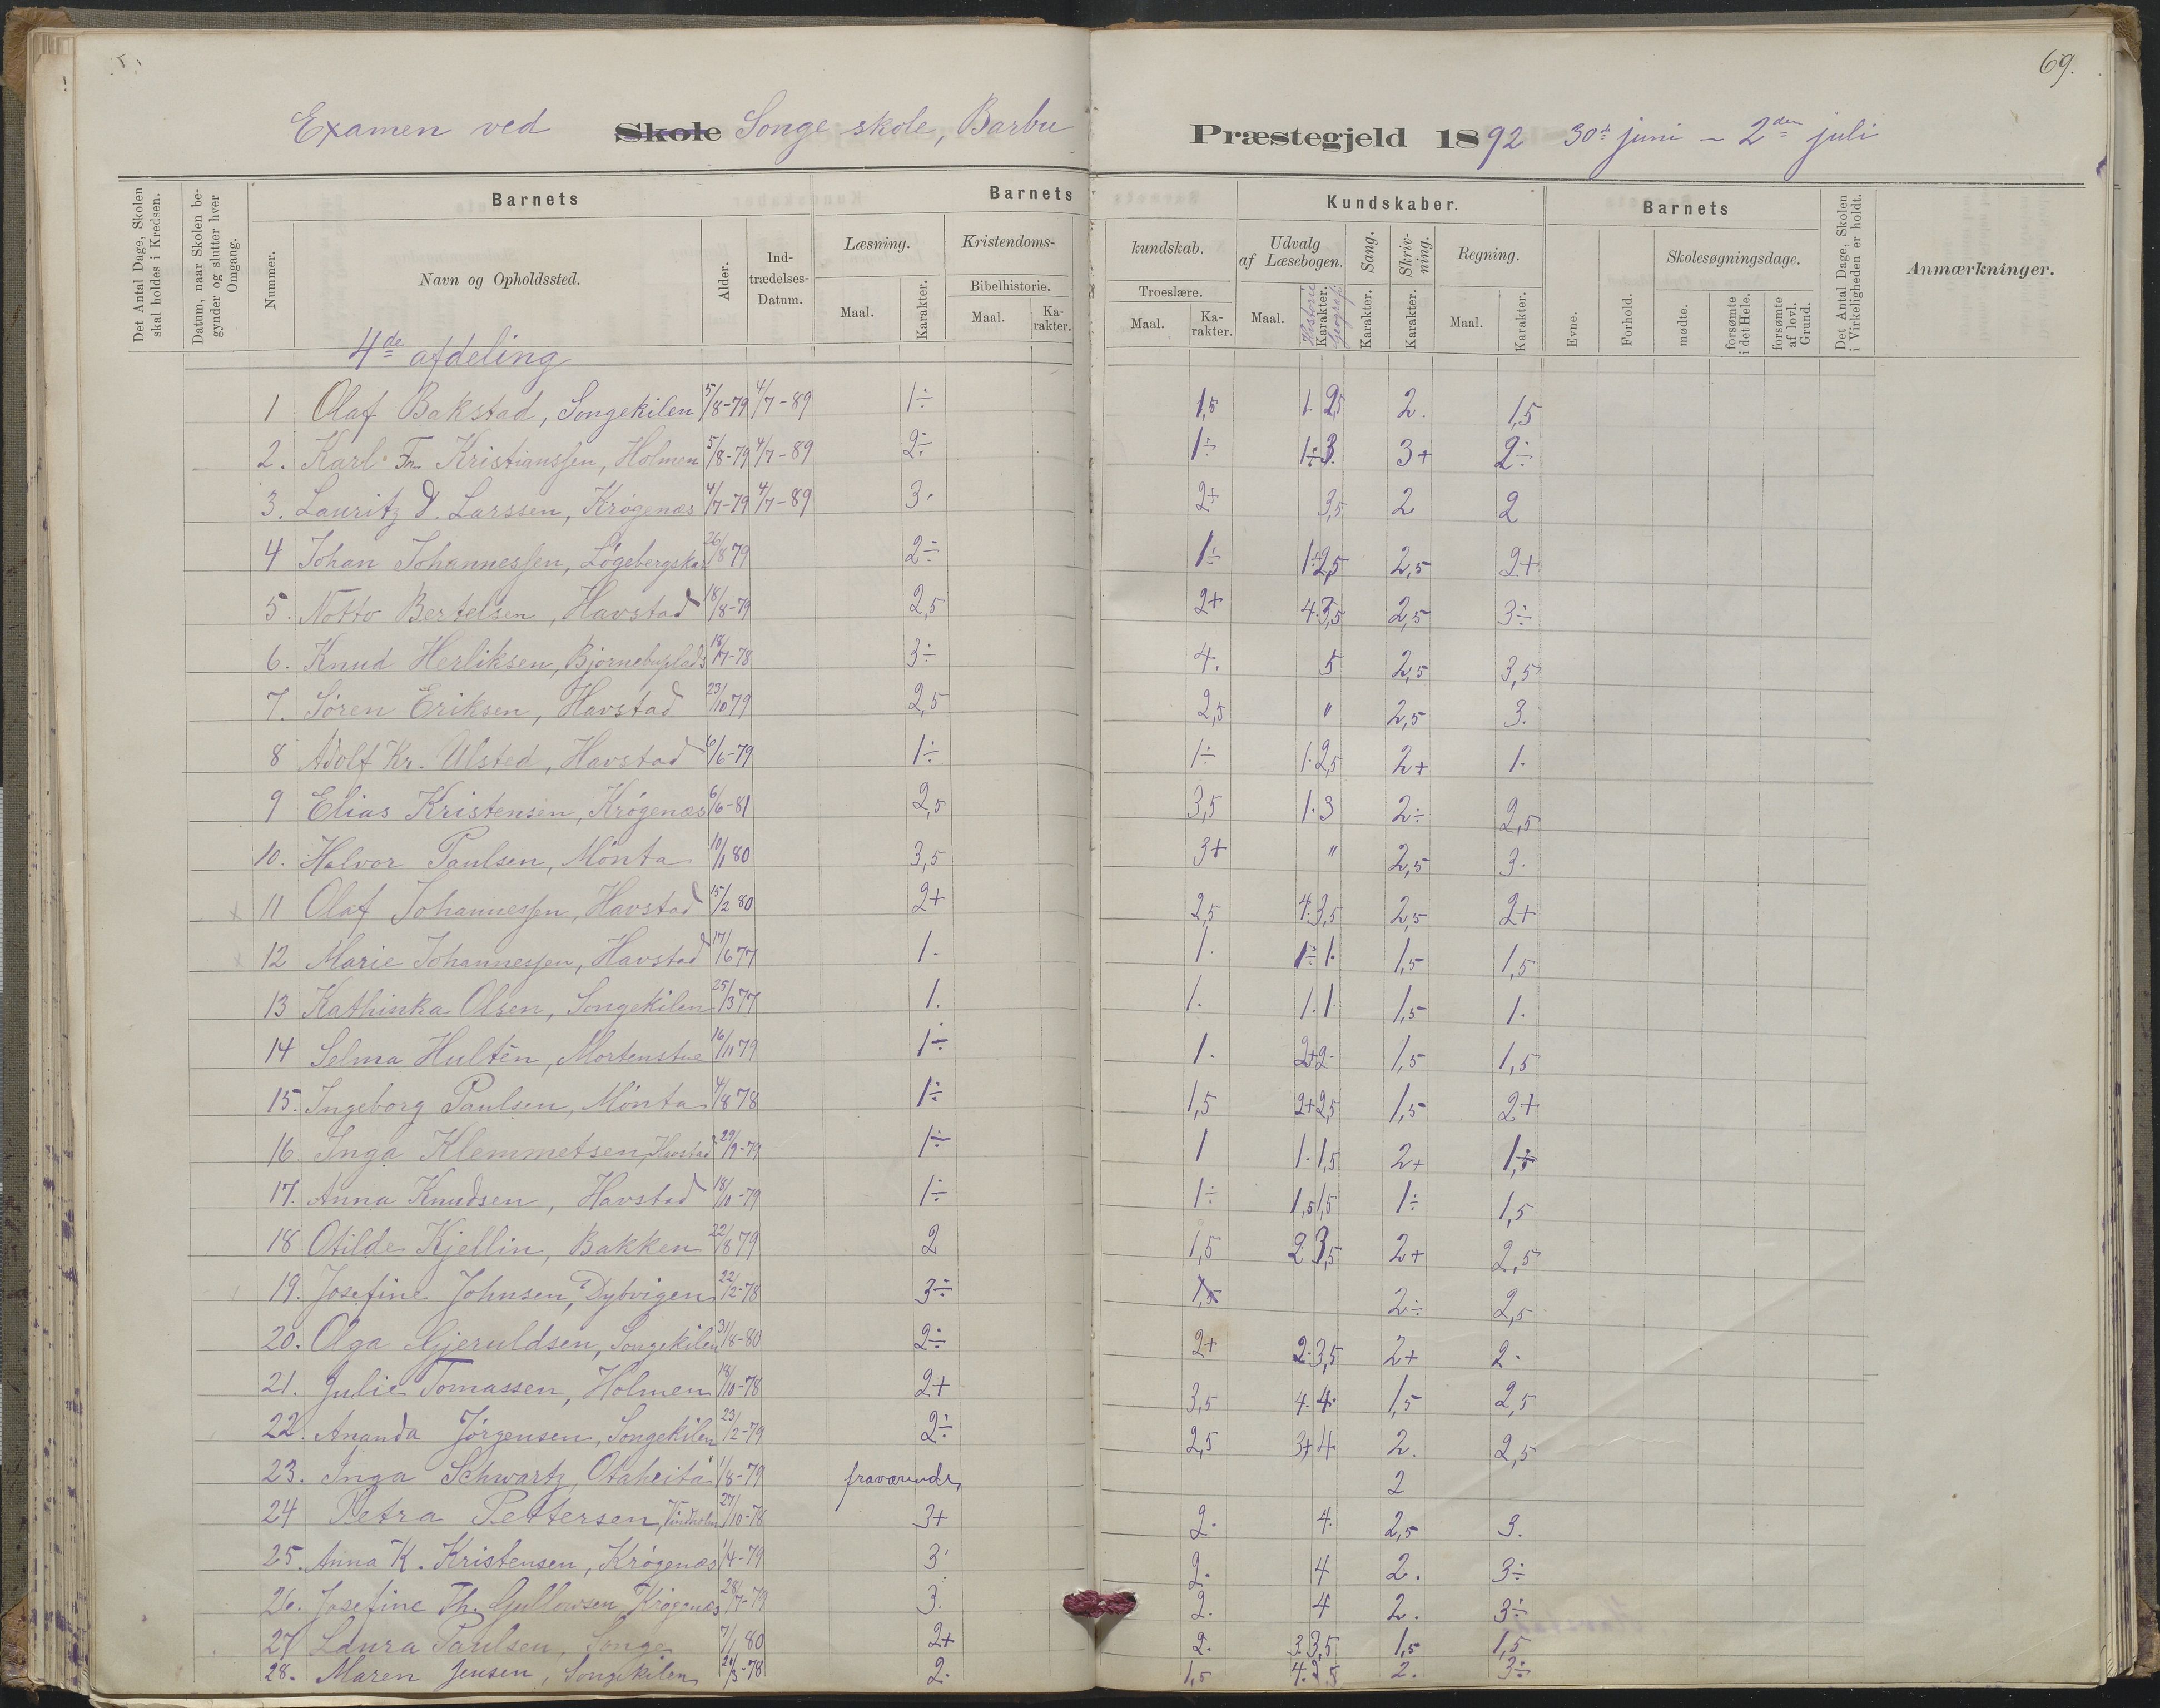 69.
Examen ved Skole Songe skole, Barbu Præstegjeld 1892 30te juni - 2den juli
Det Antal Dage, Skolen skal holdes i Kredsen.
Datum, naar Skolen begynder og slutter hver Omgang.
Barnets
Nummer.
Navn og Opholdssted.
Alder.
Indtrædelses-Datum.
Barnets Kundskaber.
Læsning. Maal. Karakter.
Kristendomskundskab.
Bibelhistorie. Maal. Karakter.
Troeslære. Maal. Karakter.
Udvalg af Læsebogen. Maal. Historie Karakter. Geografi
Sang. Karakter.
Skrivning. Karakter.
Regning. Maal. Karakter.
Barnets
Evne.
Forhold.
Skolesøgningsdage.
mødte.
forsømte i det Hele.
forsømte af lovl. Grund.
Det Antal Dage, Skolen i Virkeligheden er holdt.
Anmærkninger.
4de afdeling
1 Olaf Bakstad, Songekilen 5/8-79 4/7-89 1÷ 1,5 1. 2,5 2. 1,5
2. Karl Fr. Kristianssen, Holmen 5/8-79 4/7-89 2÷ 1÷ 1÷ 3. 3+ 2÷
3. Lauritz D. Larssen, Krögenæs 4/7-79 4/7-89 3. 2+ 3,5 2 2
4 Johan Johannessen, Lögebergskar 26/8 79 2÷ 1÷ 1÷ 2,5 2,5 2+
5. Notto Bertelsen, Havstad 18/8-79 2,5 2+ 4. 3,5 2,5 3÷
6. Knud Herliksen, Bjørnebuplads 18/7-78 3÷ 4. 5 2,5 3,5
7. Sören Eriksen, Havstad 23/10 79 2,5 2,5 " 2,5 3.
8 Adolf Kr. Ulsted, Havstad 6/6-79 1÷ 1÷ 1. 2,5 2+ 1.
9 Elias Kristensen, Krögenæs 6/6-81 2,5 3,5 1. 3 2÷ 2,5
10. Halvor Paulsen, Mönta 10/1 80 3,5 3+ " 2,5 3.
11 Olaf Johannessen, Havstad 15/2 80 2+ 2,5 4. 3,5 2,5 2+
12 Marie Johannessen, Havstad 17/6 77 1. 1. 1÷ 1. 1,5 1,5
13 Kathinka Olsen, Songekilen 25/3 77 1. 1. 1. 1. 1,5 1.
14 Selma Hultén, Mortenstue 16/11 79 1÷ 1. 2+ 2. 1,5 1,5
15. Ingeborg Paulsen, Mönta 4/8 78 1÷ 1,5 2+ 2,5 1,5 2+
16 Inga Klemmetsen, Havstad 29/9-79 1÷ 1 1. 1,5 2+ 1÷
17. Anna Knudsen, Havstad 18/10-79 1÷ 1÷ 1,5 1,5 1÷ 1,5
18 Otilde Kjellin, Bakken 22/8 79 2 1,5 2 3,5 2+ 2,5
19. Josefine Johnsen, Dybvigen 22/2-78 3÷ 2÷ 2,5
20. Olga Gjeruldsen, Songekilen 31/8-80 2÷ 2+ 2. 3,5 2+ 2.
21. Julie Tomassen, Holmen 18/10-78 2+ 3,5 4. 4. 1,5 2,5
22. Ananda Jörgensen, Songekilen 23/2-79 2÷ 2,5 3+ 4. 2. 2,5
23. Inga Schwartz, Otaheita 1/8-79 fraværende 2
24 Petra Pettersen, Vindholmen 27/10-78 3+ 2. 4. 2,5 3.
25. Anna K. Kristensen, Krögenæs 1/4-79 3. 2. 4 2. 3÷
26. Josefine Th. Gullowsen Krögenæs 28/7-79 3. 2. 4 2. 3÷
27 Laura Paulsen, Songe 7/1 80 2+ 2. 3. 3,5 1,5 1,5
28. Maren Jensen, Songekilen /3-78 2. 1,5 4. 2. 3÷